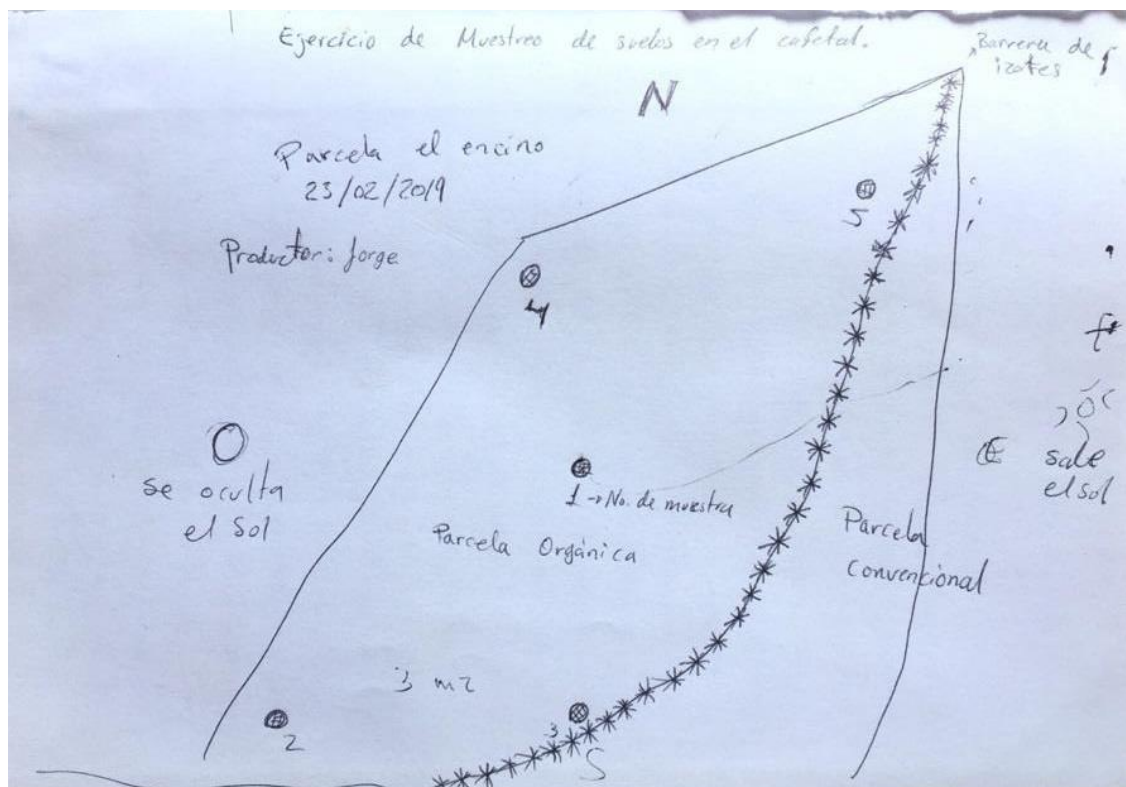 Ejercicio de Muestreo de suelos en el cafetal.
Barrera de
izotes
N
Parcela el encino
23/02/2019
Productor: Jorge
5
4
se oculta
el Sol
E sale
el sol
1 → No. de muestra
Parcela Orgánica
Parcela
convencional
2
3
S